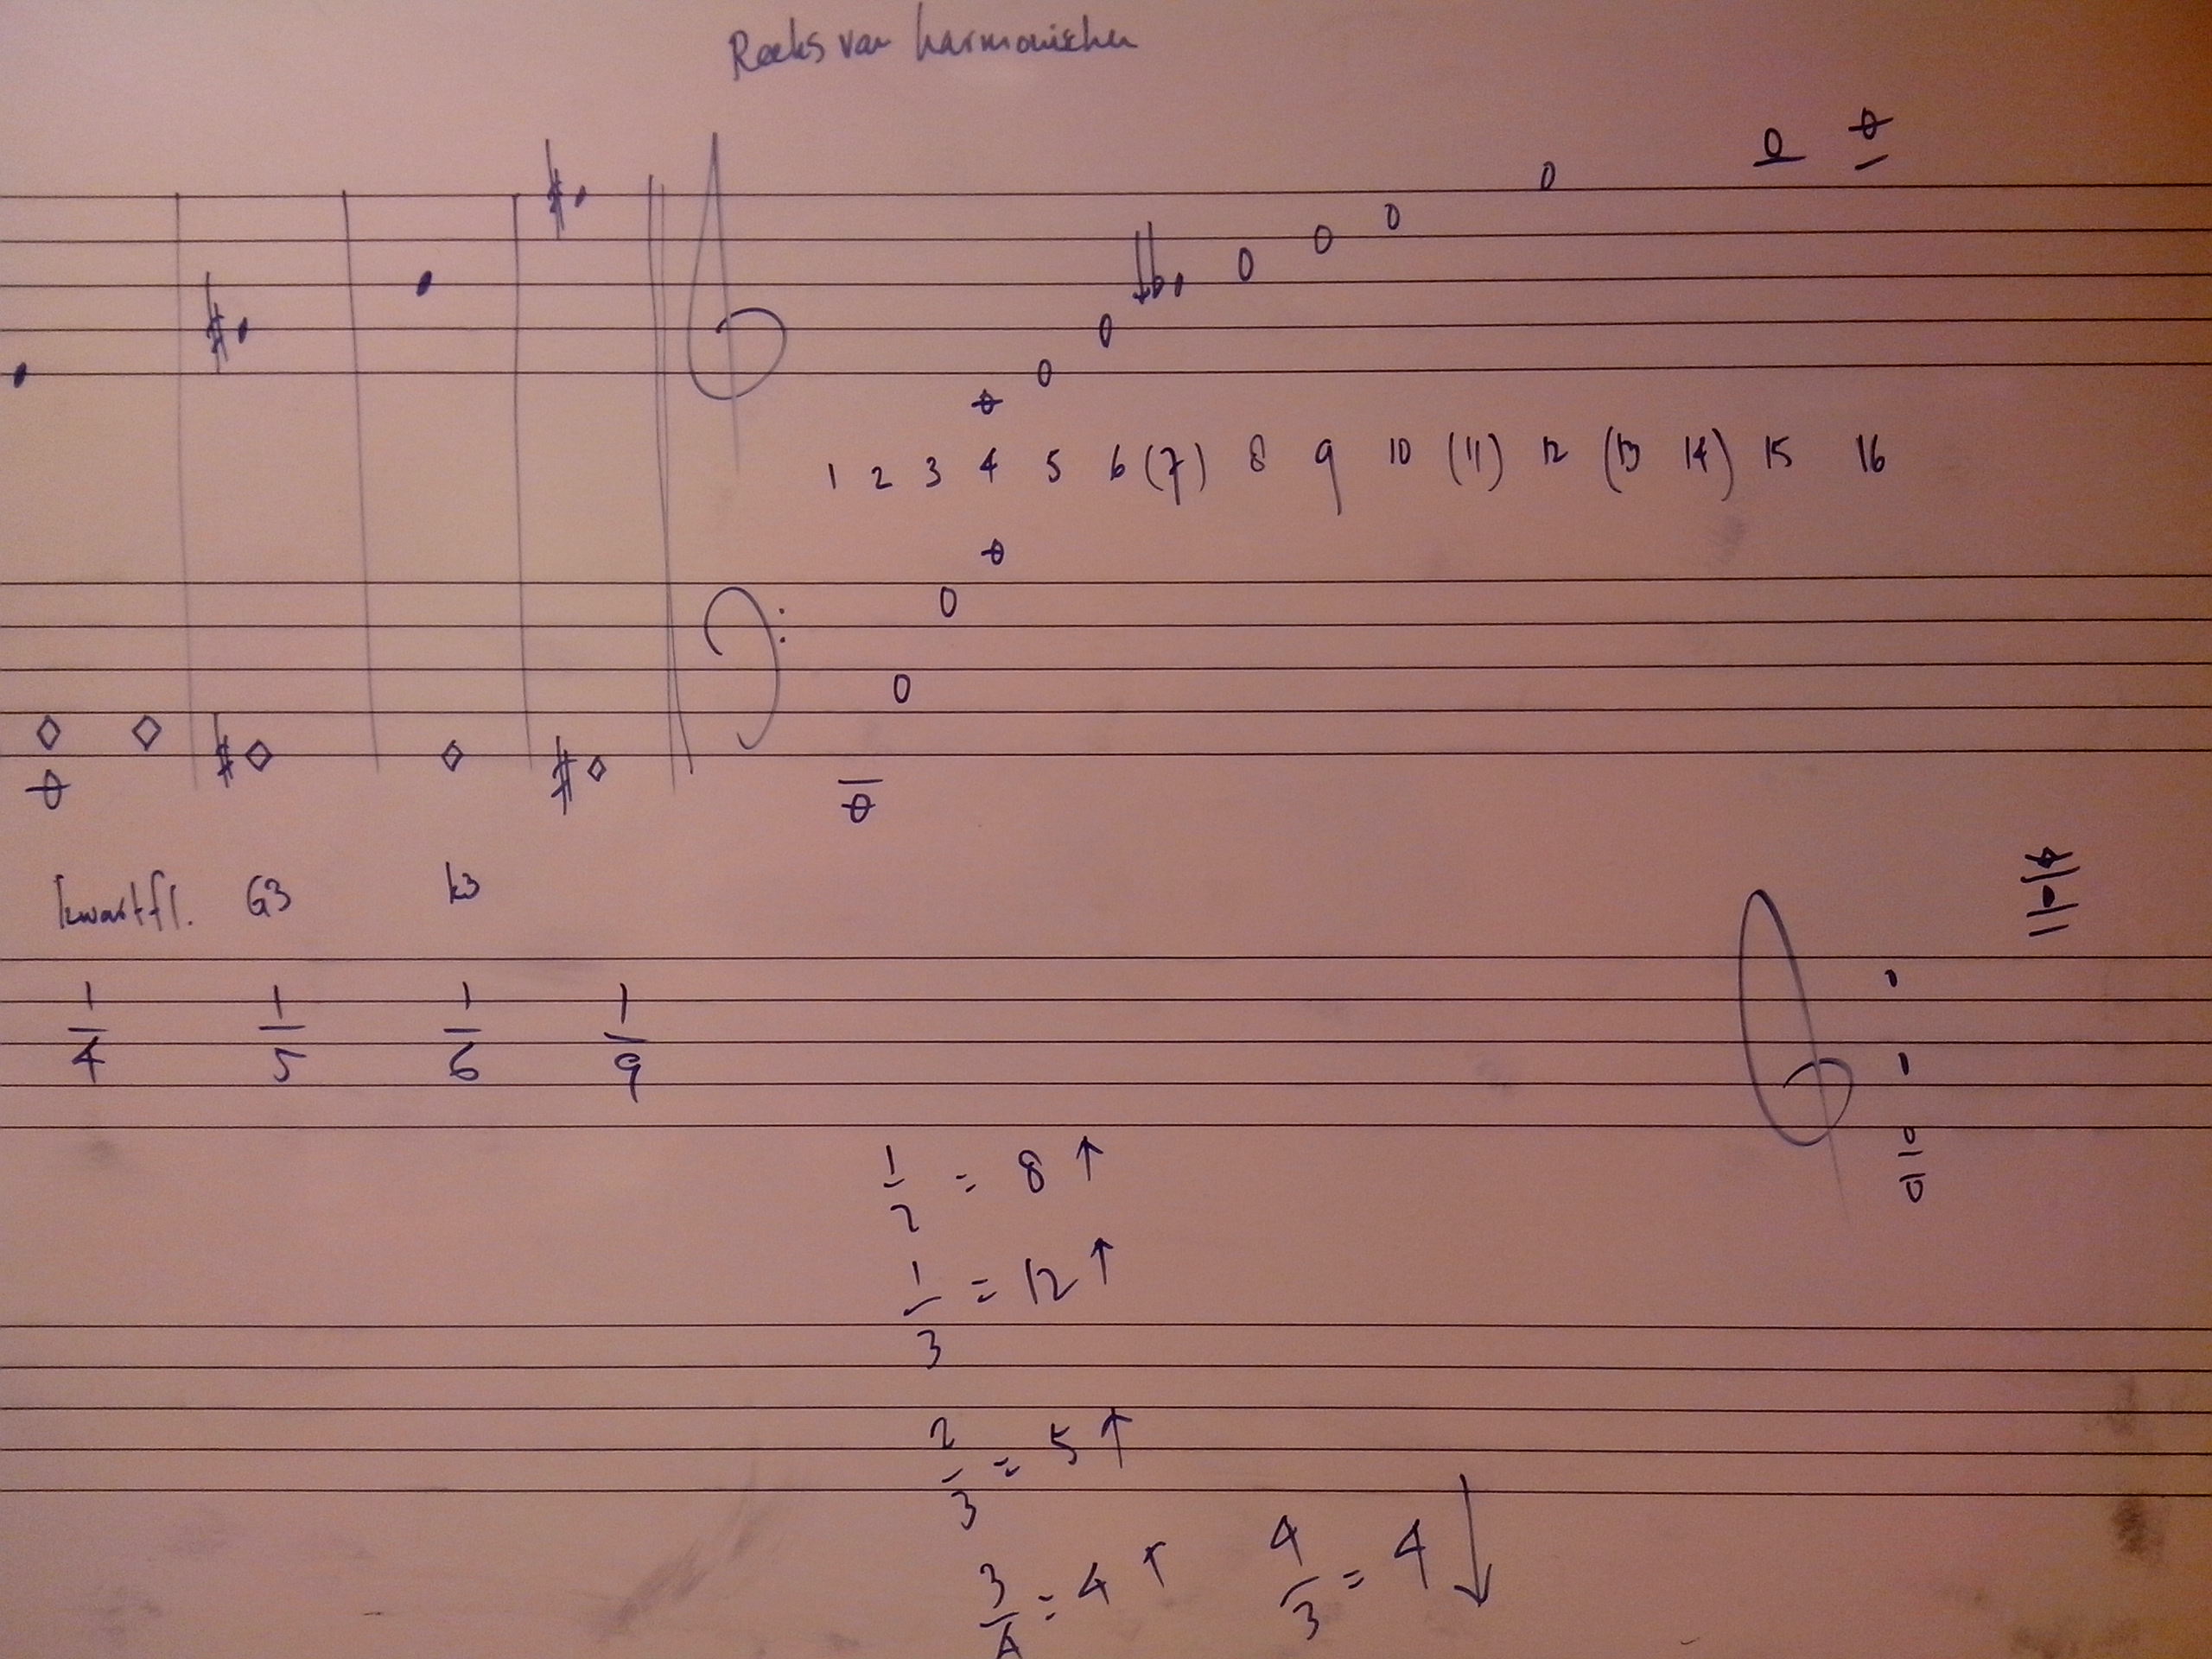 Reeks van harmonischen
1 2 3 4 5 6 (7) 8 9 10 (11) 12 (13 14) 15 16
kwartfl. G3 k3
1/4 1/5 1/6 1/9
1/2 = 8 ↑
1/3 = 12 ↑
2/3 = 5 ↑
3/4 = 4 ↑ 4/3 = 4 ↓